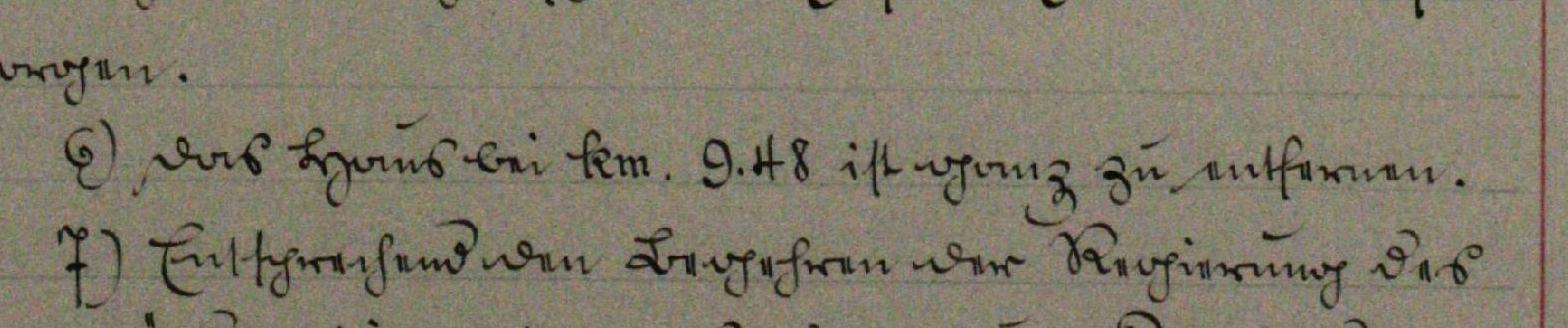 6) Das Haus bei km. 9.48 ist ganz zu entfernen.
7) Entsprechend den Begehren der Regierung des